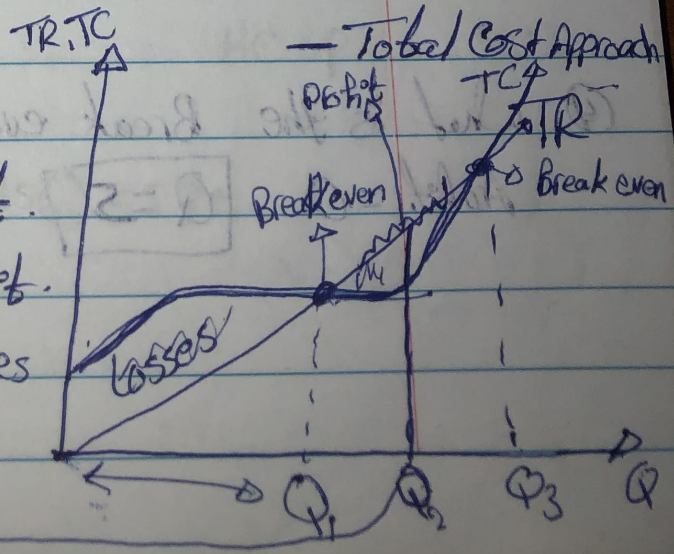 TR, TC
— Total Cost Approach
TC
Profit
TR
Break even
Break even
Losses
es
Q1 Q2 Q3 Q